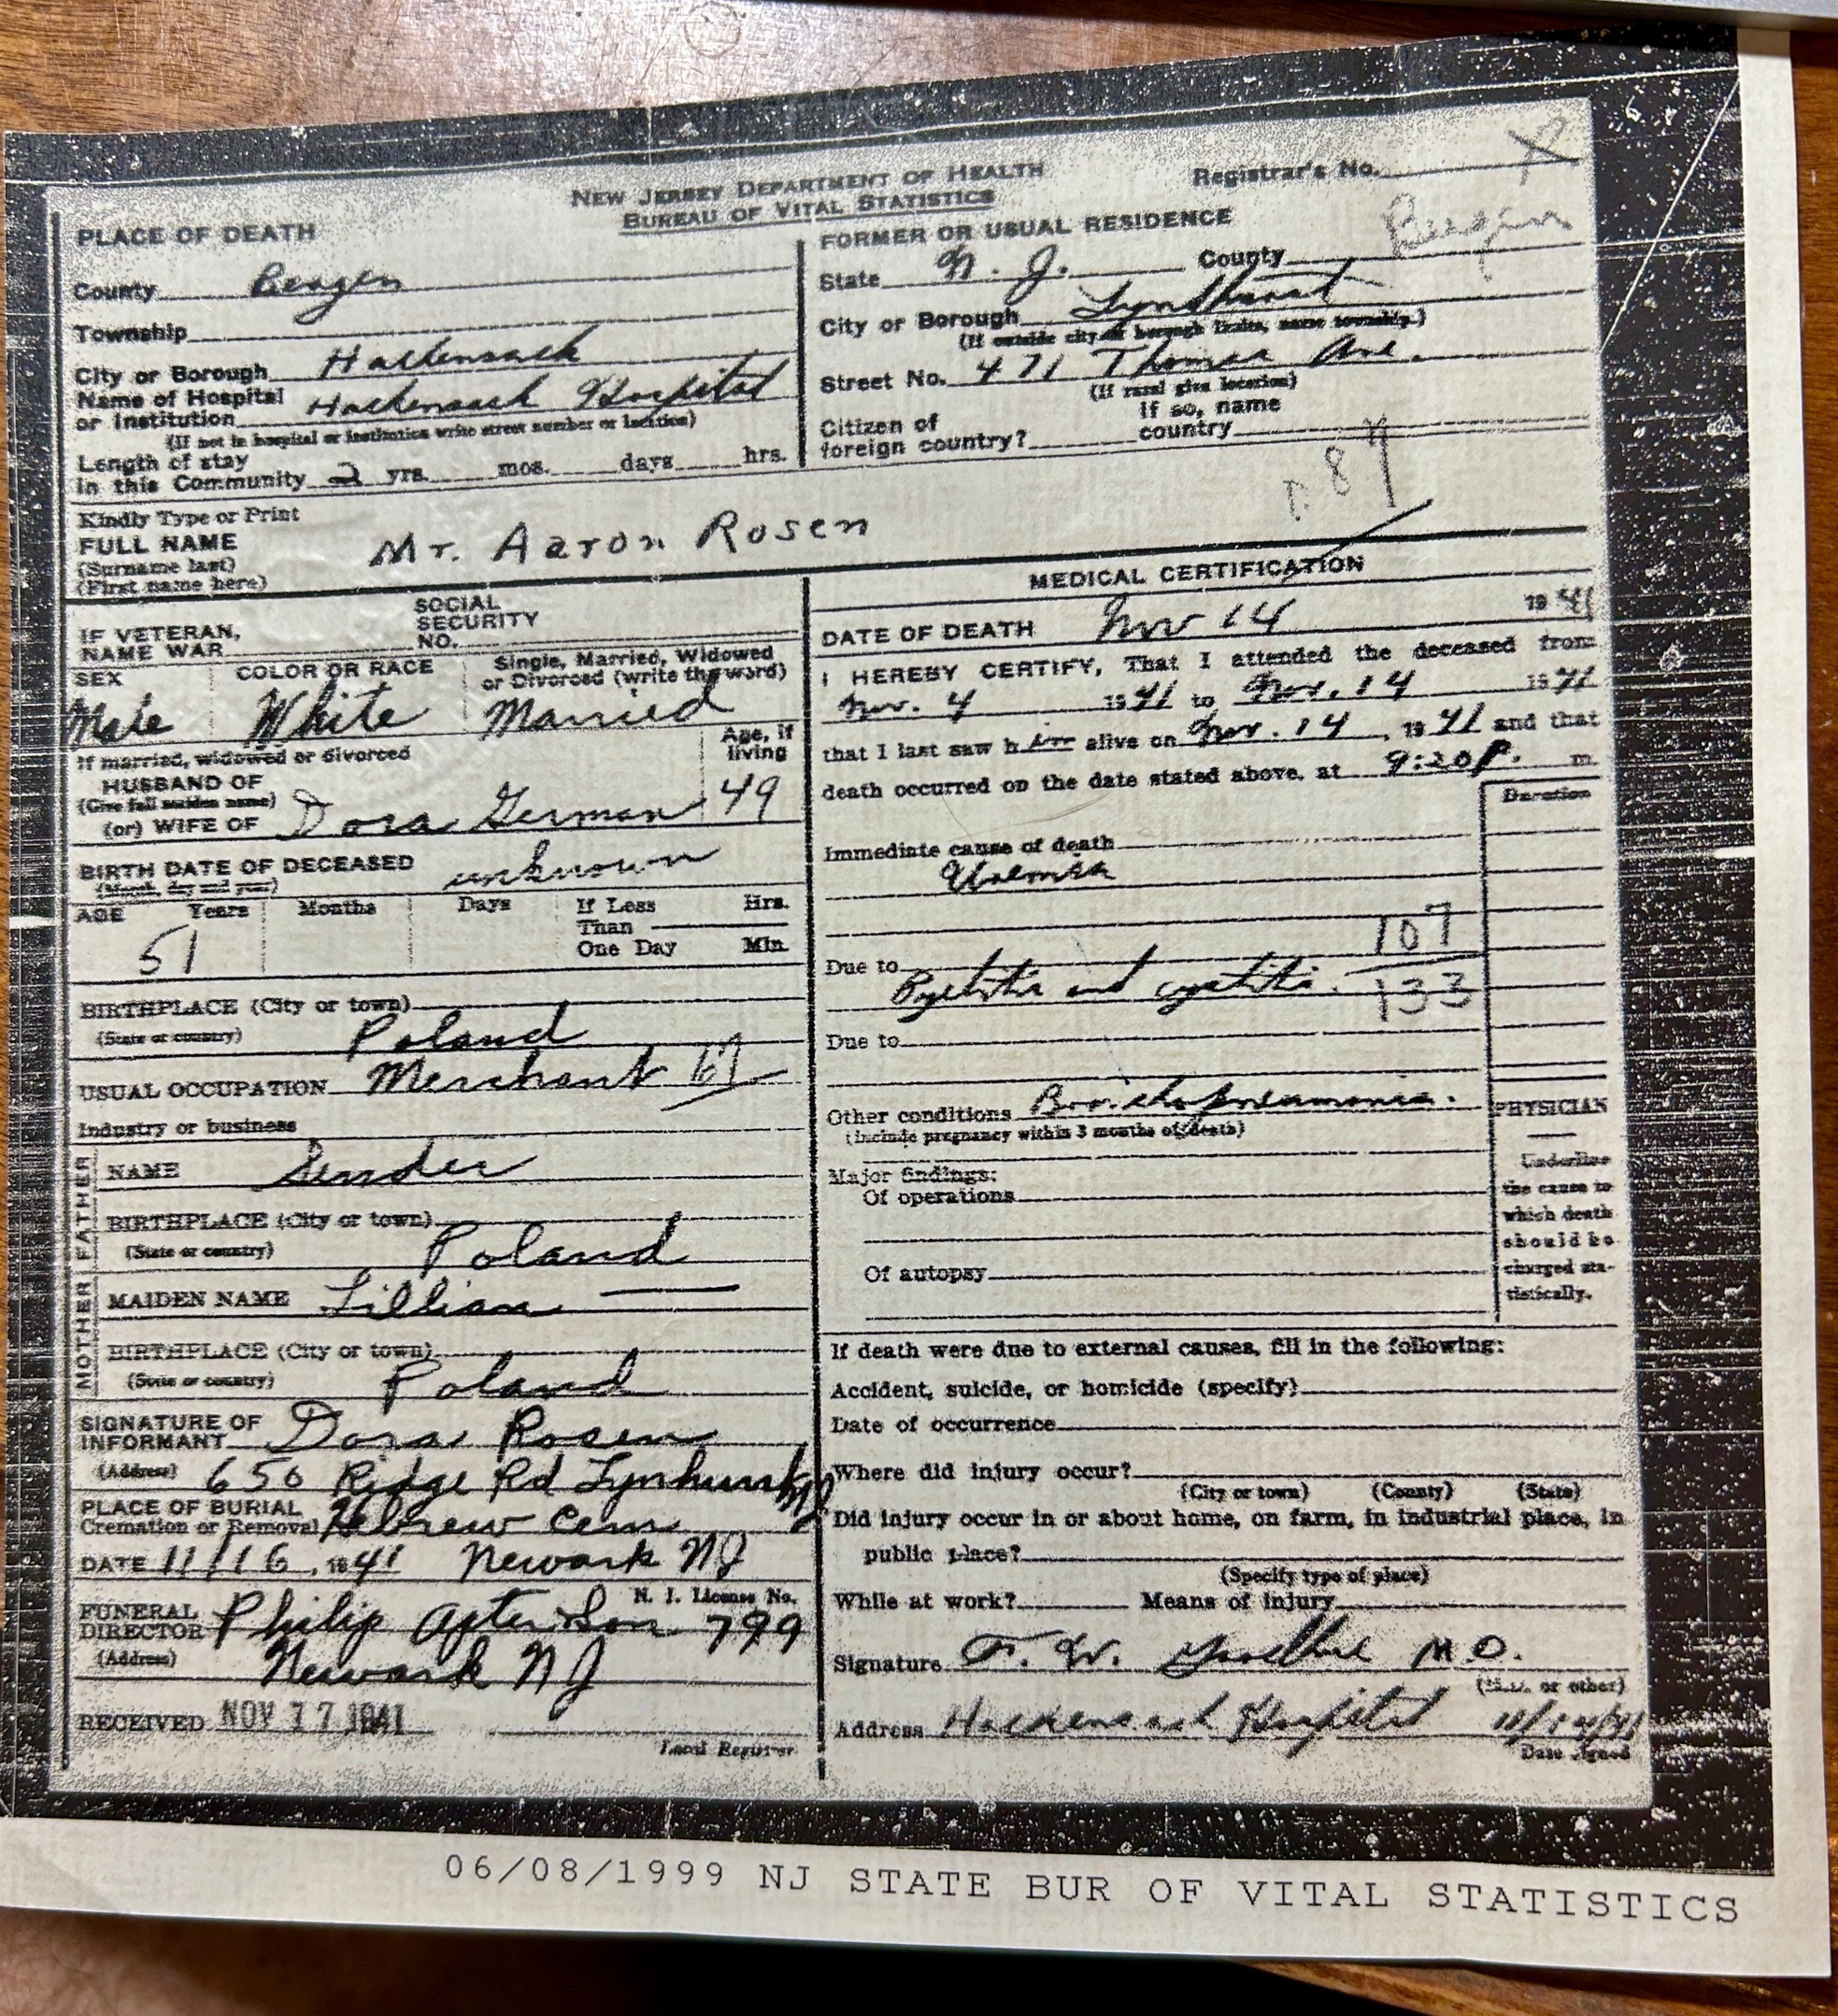 NEW JERSEY DEPARTMENT OF HEALTH
BUREAU OF VITAL STATISTICS
Registrar's No.
PLACE OF DEATH
County Bergen
Township
City or Borough Hackensack
Name of Hospital
or Institution Hackensack Hospital
(If not in hospital or institution write street number or location)
Length of stay
in this Community 2 yrs. mos. days hrs.
FORMER OR USUAL RESIDENCE
State N. J. County Bergen
City or Borough Lyndhurst
(If outside city or borough limits, name township.)
Street No. 471 Thomas Ave.
(If rural give location)
Citizen of If so, name
foreign country? country
Kindly Type or Print
FULL NAME Mr. Aaron Rosen
(Surname last)
(First name here)
IF VETERAN,
NAME WAR
SOCIAL
SECURITY
NO.
SEX COLOR OR RACE Single, Married, Widowed
or Divorced (write the word)
Male White Married
If married, widowed or divorced
Age, if
living
HUSBAND OF
(Give full maiden name)
(or) WIFE OF Dora German 49
BIRTH DATE OF DECEASED unknown
(Month, day and year)
AGE Years Months Days If Less Hrs.
Than
One Day Min.
51
BIRTHPLACE (City or town)
(State or country) Poland
USUAL OCCUPATION Merchant
Industry or business
FATHER
NAME Sender
BIRTHPLACE (City or town)
(State or country) Poland
MOTHER
MAIDEN NAME Lillian —
BIRTHPLACE (City or town)
(State or country) Poland
SIGNATURE OF
INFORMANT Dora Rosen
(Address) 650 Ridge Rd Lynhurst NJ
PLACE OF BURIAL
Cremation or Removal Hebrew Cem
DATE 11/16, 1941 Newark NJ
N. J. License No.
FUNERAL
DIRECTOR Philip Apter & Son 799
(Address) Newark NJ
RECEIVED NOV 17 1941
Local Registrar
MEDICAL CERTIFICATION
DATE OF DEATH Nov 14 1941
I HEREBY CERTIFY, That I attended the deceased from
Nov. 4 1941 to Nov. 14 1941
that I last saw h im alive on Nov. 14, 1941 and that
death occurred on the date stated above, at 9:20 P. m.
Duration
Immediate cause of death
Uremia
107
Due to
Pyelitis and cystitis. 133
Due to
Other conditions Bronchopneumonia.
(Include pregnancy within 3 months of death)
Major findings:
Of operations
Of autopsy
PHYSICIAN
Underline
the cause to
which death
should be
charged sta-
tistically.
If death were due to external causes, fill in the following:
Accident, suicide, or homicide (specify)
Date of occurrence
Where did injury occur?
(City or town) (County) (State)
Did injury occur in or about home, on farm, in industrial place, in
public place?
(Specify type of place)
While at work? Means of injury
Signature F. W. M.D.
(M.D. or other)
Address Hackensack Hospital 11/14/41
Date signed
06/08/1999 NJ STATE BUR OF VITAL STATISTICS